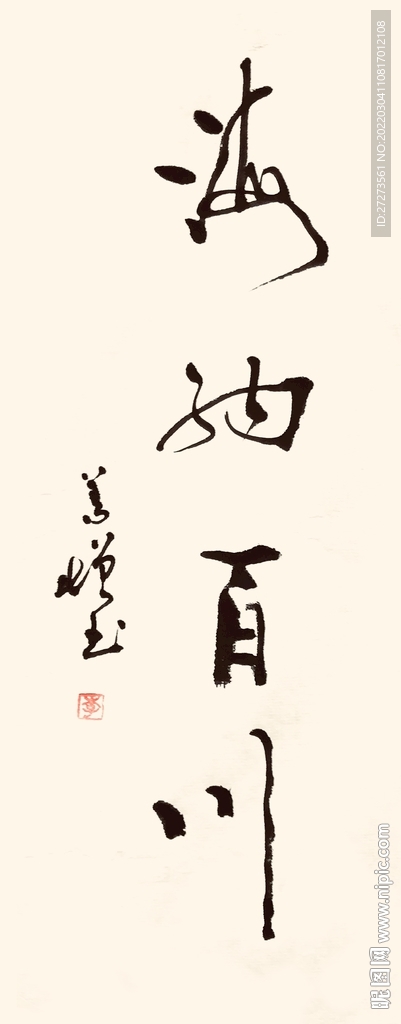 海纳百川
ID:27273561 NO:20220304110817012108
昵图网 www.nipic.com